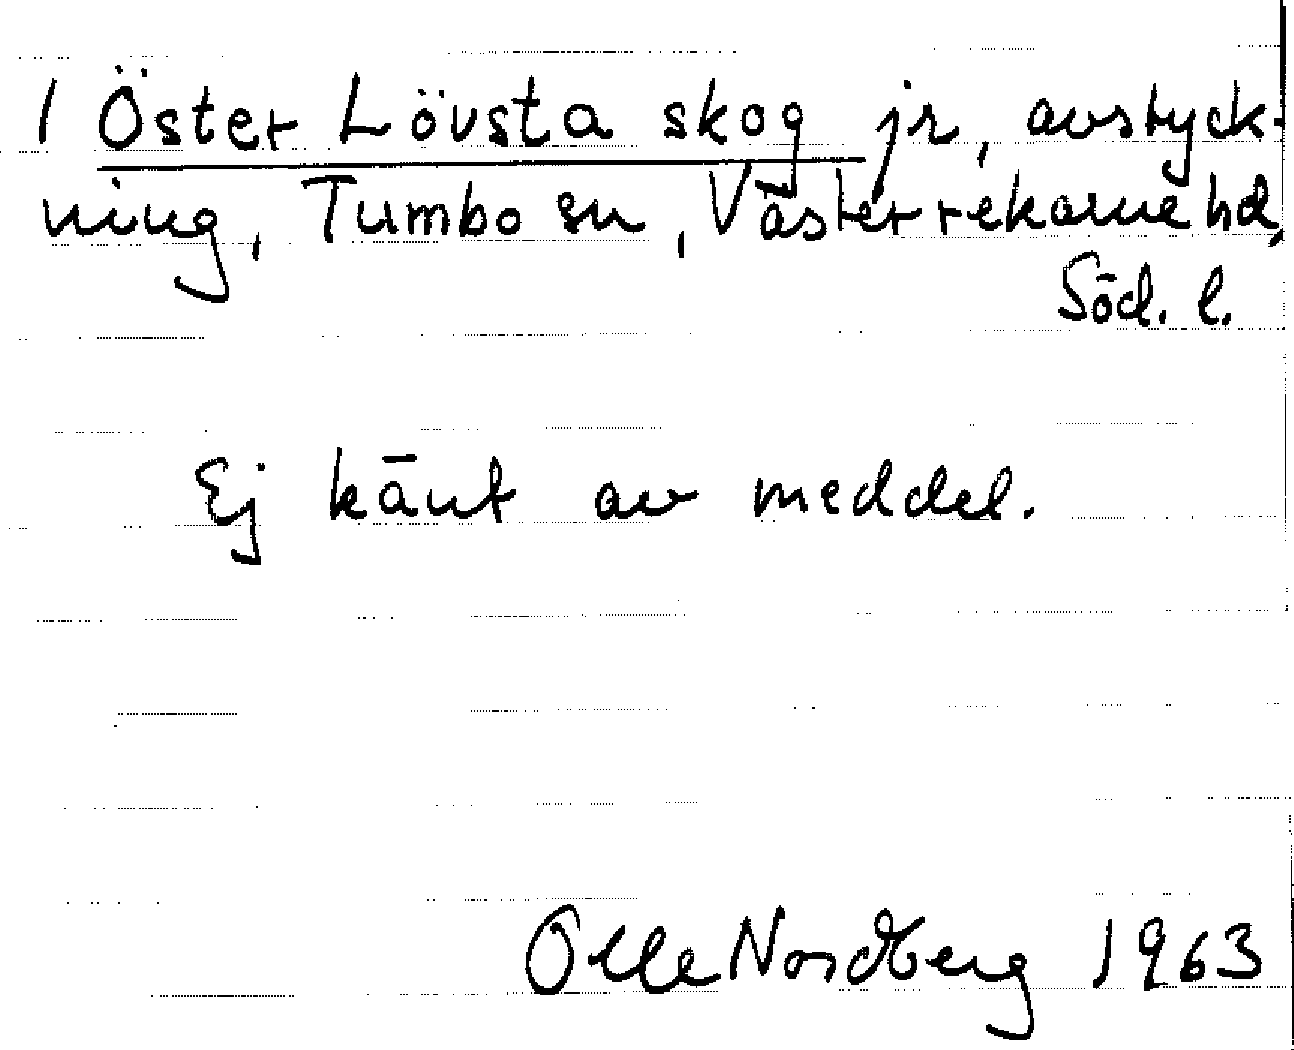 / Öster Lövsta skog jr, avstyck-
ning, Tumbo sn, Västerrekarne hd,
Söd. l.
Ej känt av meddel.
Olle Nordberg 1963